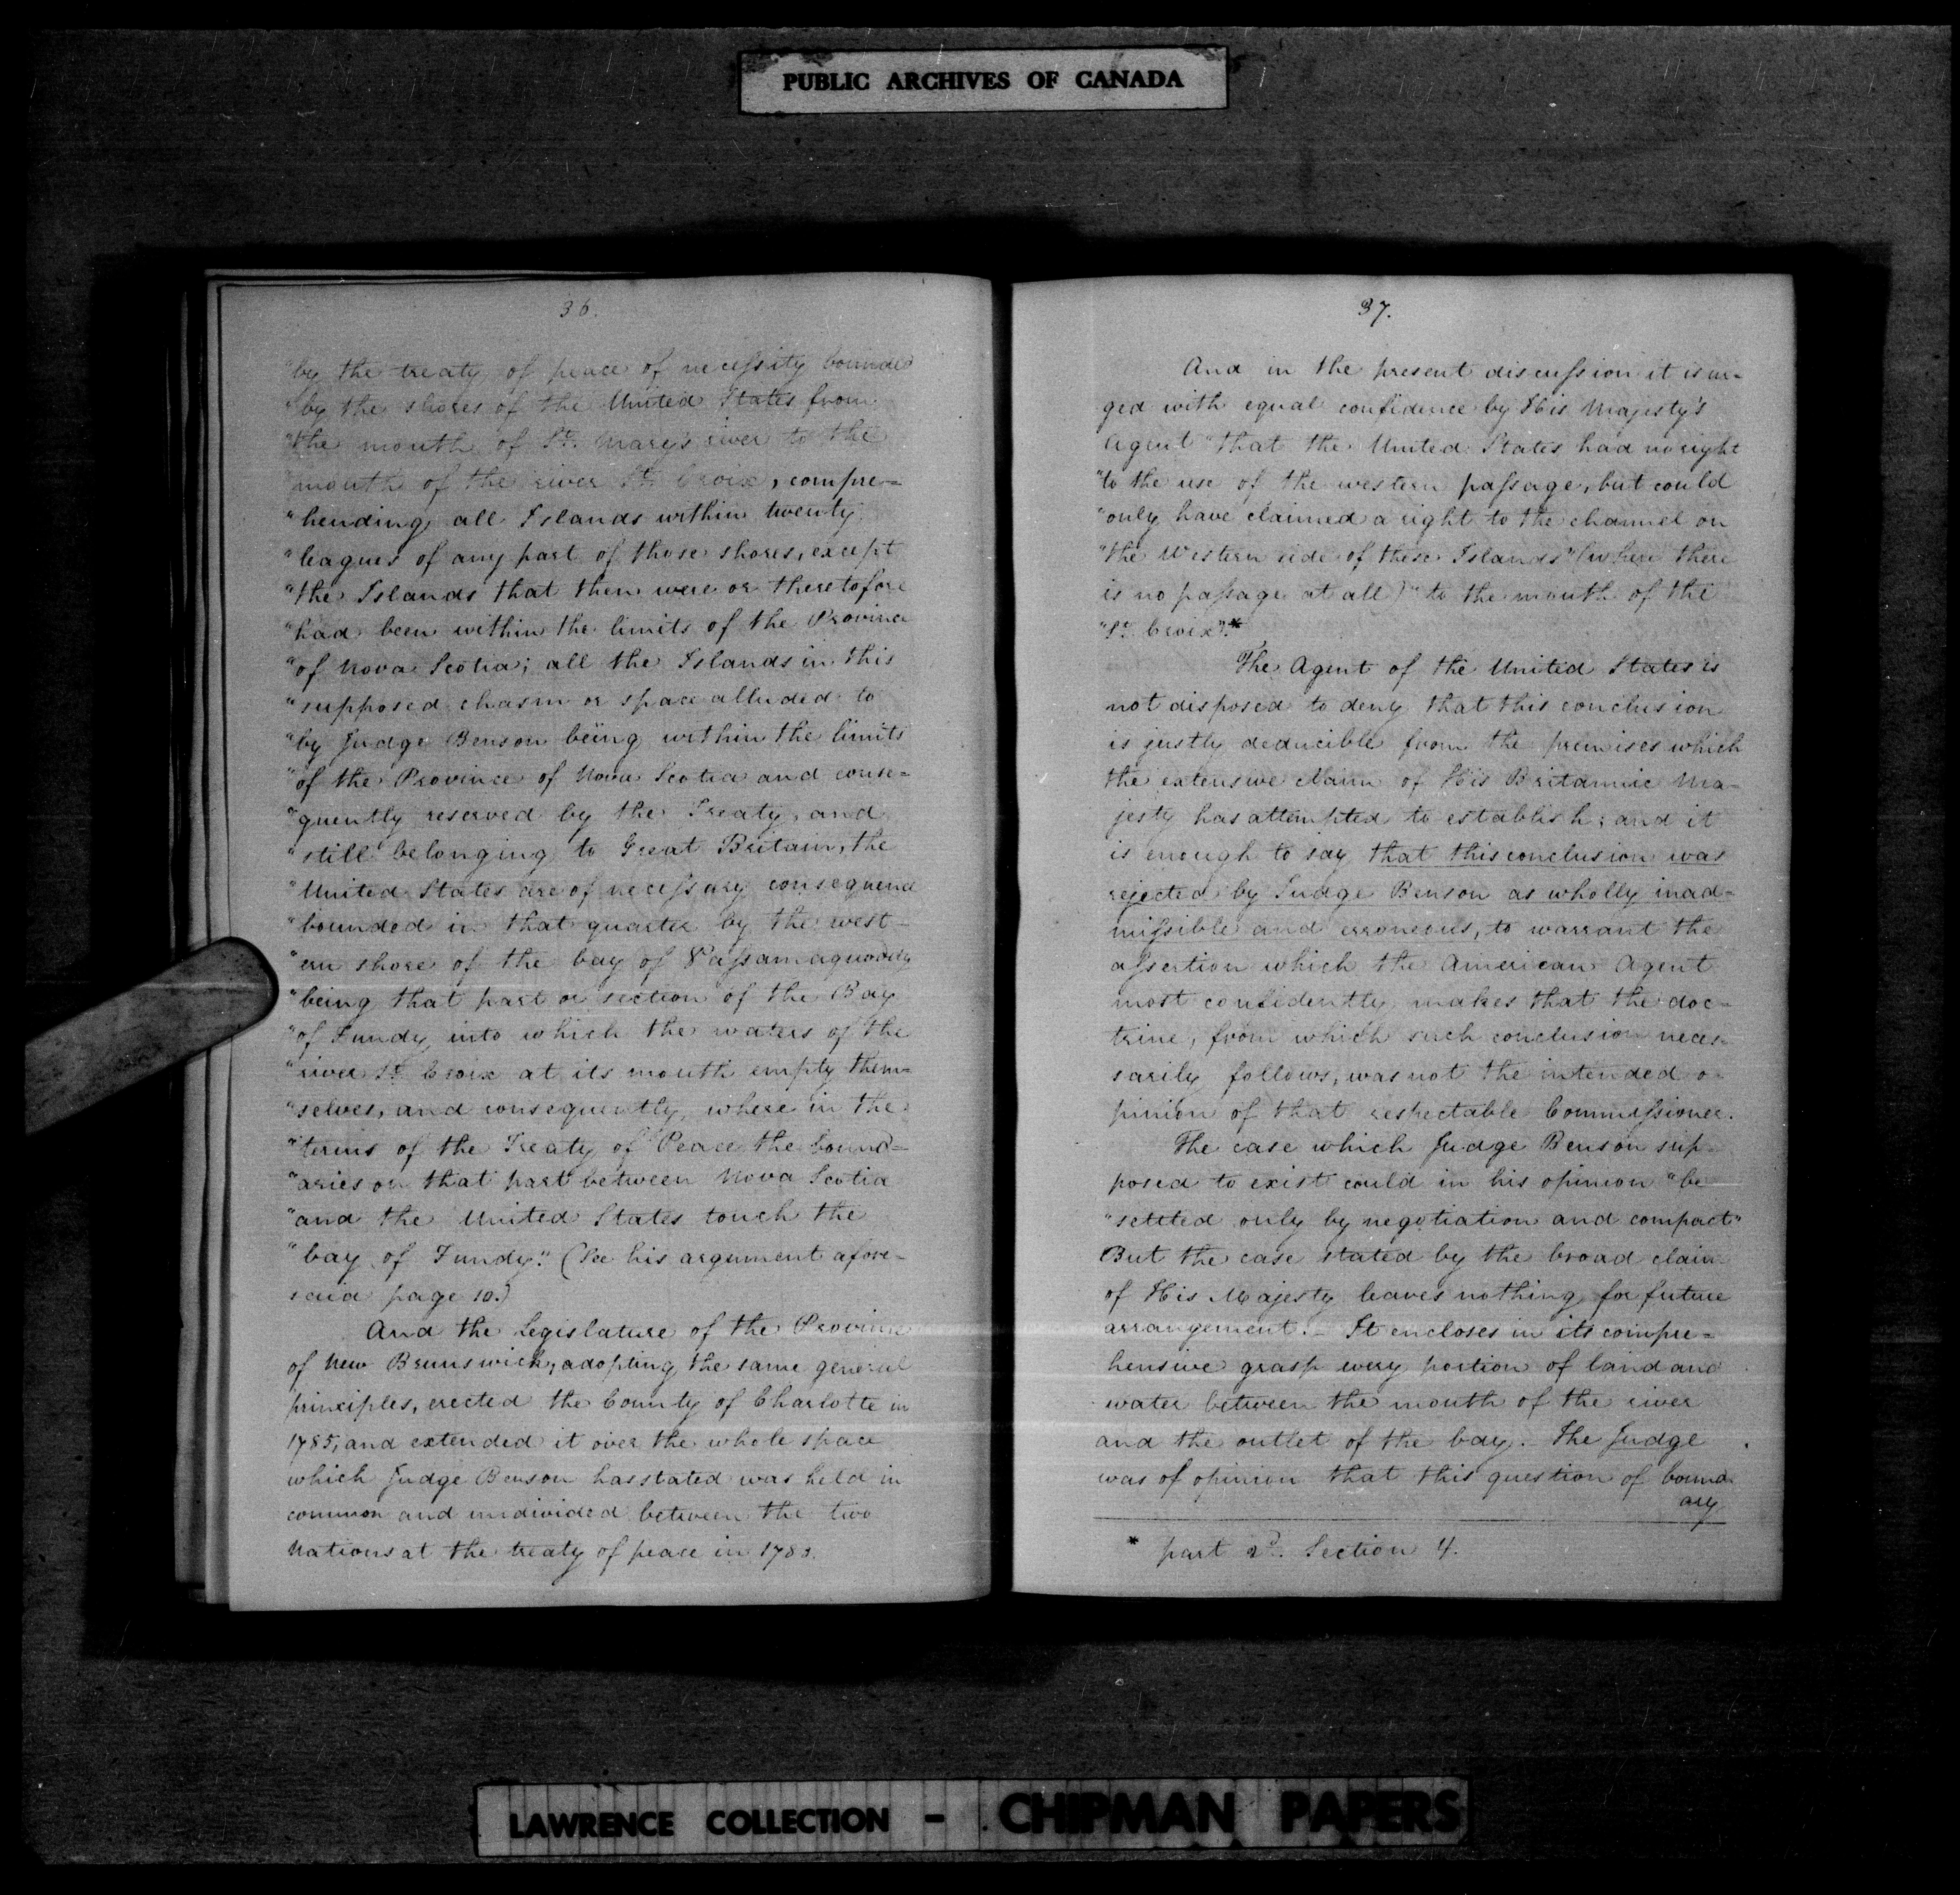 PUBLIC ARCHIVES OF CANADA
36.
"by the treaty of peace of necessity bounded
"by the shores of the United States from
"the mouth of St. Mary's river to the
"mouth of the river St. Croix, compre=
"hending all Islands within twenty
"leagues of any part of those shores, except
"the Islands that then were or theretofore
"had been within the limits of the Province
"of Nova Scotia; all the Islands in this
"supposed chasm or space alluded to
"by Judge Benson being within the limits
"of the Province of Nova Scotia and conse=
"quently reserved by the Treaty, and
"still belonging to Great Britain, the
"United States are of necessary consequence
"bounded in that quarter by the west-
"ern shore of the bay of Passamaquoddy
"being that part or section of the Bay
"of Fundy into which the waters of the
"river St. Croix at its mouth empty them=
"selves, and consequently where in the
"terms of the Treaty of Peace the bound=
"aries on that part between Nova Scotia
"and the United States touch the
"bay of Fundy." (See his argument afore-
said page 10.)
And the Legislature of the Province
of New Brunswick, adopting the same general
principles, erected the County of Charlotte in
1785, and extended it over the whole space
which Judge Benson has stated was held in
common and undivided between the two
Nations at the treaty of peace in 1783.
37.
And in the present discussion it is ur-
ged with equal confidence by His Majesty's
Agent "that the United States had no right
"to the use of the western passage, but could
"only have claimed a right to the channel on
"the Western side of these Islands" (where there
is no passage at all) "to the mouth of the
"St. Croix".*
The Agent of the United States is
not disposed to deny that this conclusion
is justly deducible from the premises which
the extensive claim of His Britannic Ma-
jesty has attempted to establish; and it
is enough to say that this conclusion was
rejected by Judge Benson as wholly inad-
missible and erroneous, to warrant the
assertion which the American Agent
most confidently makes that the doc-
trine, from which such conclusion neces-
sarily follows, was not the intended o-
pinion of that respectable Commissioner.
The case which Judge Benson sup-
posed to exist could in his opinion "be
"settled only by negotiation and compact"
But the case stated by the broad claim
of His Majesty leaves nothing for future
arrangement. - It encloses in its compre=
hensive grasp every portion of land and
water between the mouth of the river
and the outlet of the bay. - The Judge
was of opinion that this question of bound-
ary
* part 2d. Section 4.
LAWRENCE COLLECTION - CHIPMAN PAPERS